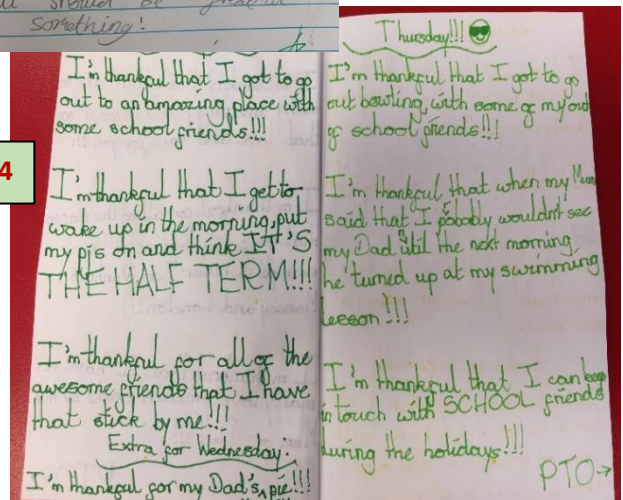 should be grateful
something!
4
I'm thankful that I got to go
out to an amazing place with
some school friends!!!
I'm thankful that I get to
wake up in the morning, put
my pjs on and think IT'S
THE HALF TERM!!!
I'm thankful for all of the
awesome friends that I have
that stick by me!!!
Extra for Wednesday:
I'm thankful for my Dad's pie!!!
Thursday!!!
I'm thankful that I got to go
out bowling, with some of my out
of school friends!!!
I'm thankful that when my Mum
said that I pobably wouldn't see
my Dad until the next morning,
he turned up at my swimming
lesson!!!
I'm thankful that I can keep
in touch with SCHOOL friends
during the holidays!!!
PTO→